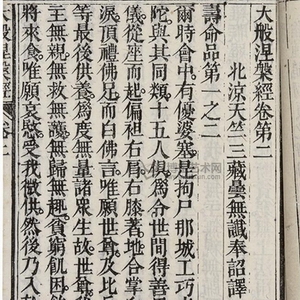 大般涅槃經卷第二
北涼天竺三藏曇無讖奉詔譯
壽命品第一之二
爾時會中有優婆塞是拘尸那城工巧
陀與其同類十五人俱為令世間得善
儀從座而起偏袒右肩右膝著地合掌
淚頂禮佛足而白佛言唯願世尊及比
等最後供養為度無量諸眾生故世尊
主無親無救無護無歸無趣貧窮飢困
將來食唯願哀愍受我微供然後乃入